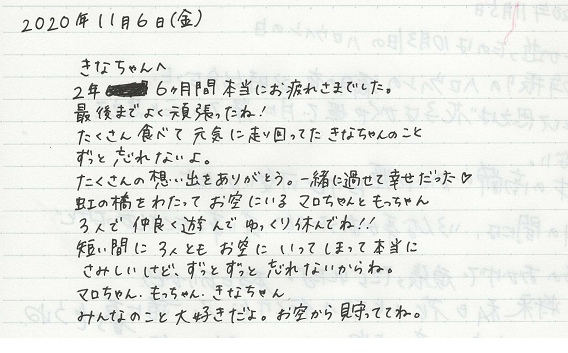 2020年11月6日(金)
きなちゃんへ
2年 6ヶ月間本当にお疲れさまでした。
最後までよく頑張ったね!
たくさん食べて元気に走り回ってたきなちゃんのこと
ずっと忘れないよ。
たくさんの想い出をありがとう。一緒に過せて幸せだった♡
虹の橋をわたってお空にいるマロちゃんともっちゃん
3人で仲良く遊んでゆっくり休んでね!!
短い間に3人ともお空にいってしまって本当に
さみしいけど、ずっとずっと忘れないからね。
マロちゃん・もっちゃん・きなちゃん
みんなのこと大好きだよ。お空から見守っててね。